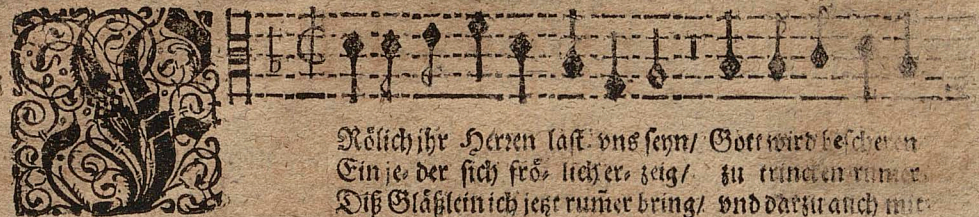 FRölich jhr Herren last vns seyn/ Gott wird bescheren
Ein je- der sich frö- lich er- zeig/ zu trincken rum̃er
Diß Gläßlein ich jetzt rum̃er bring/ vnd darzu auch mit